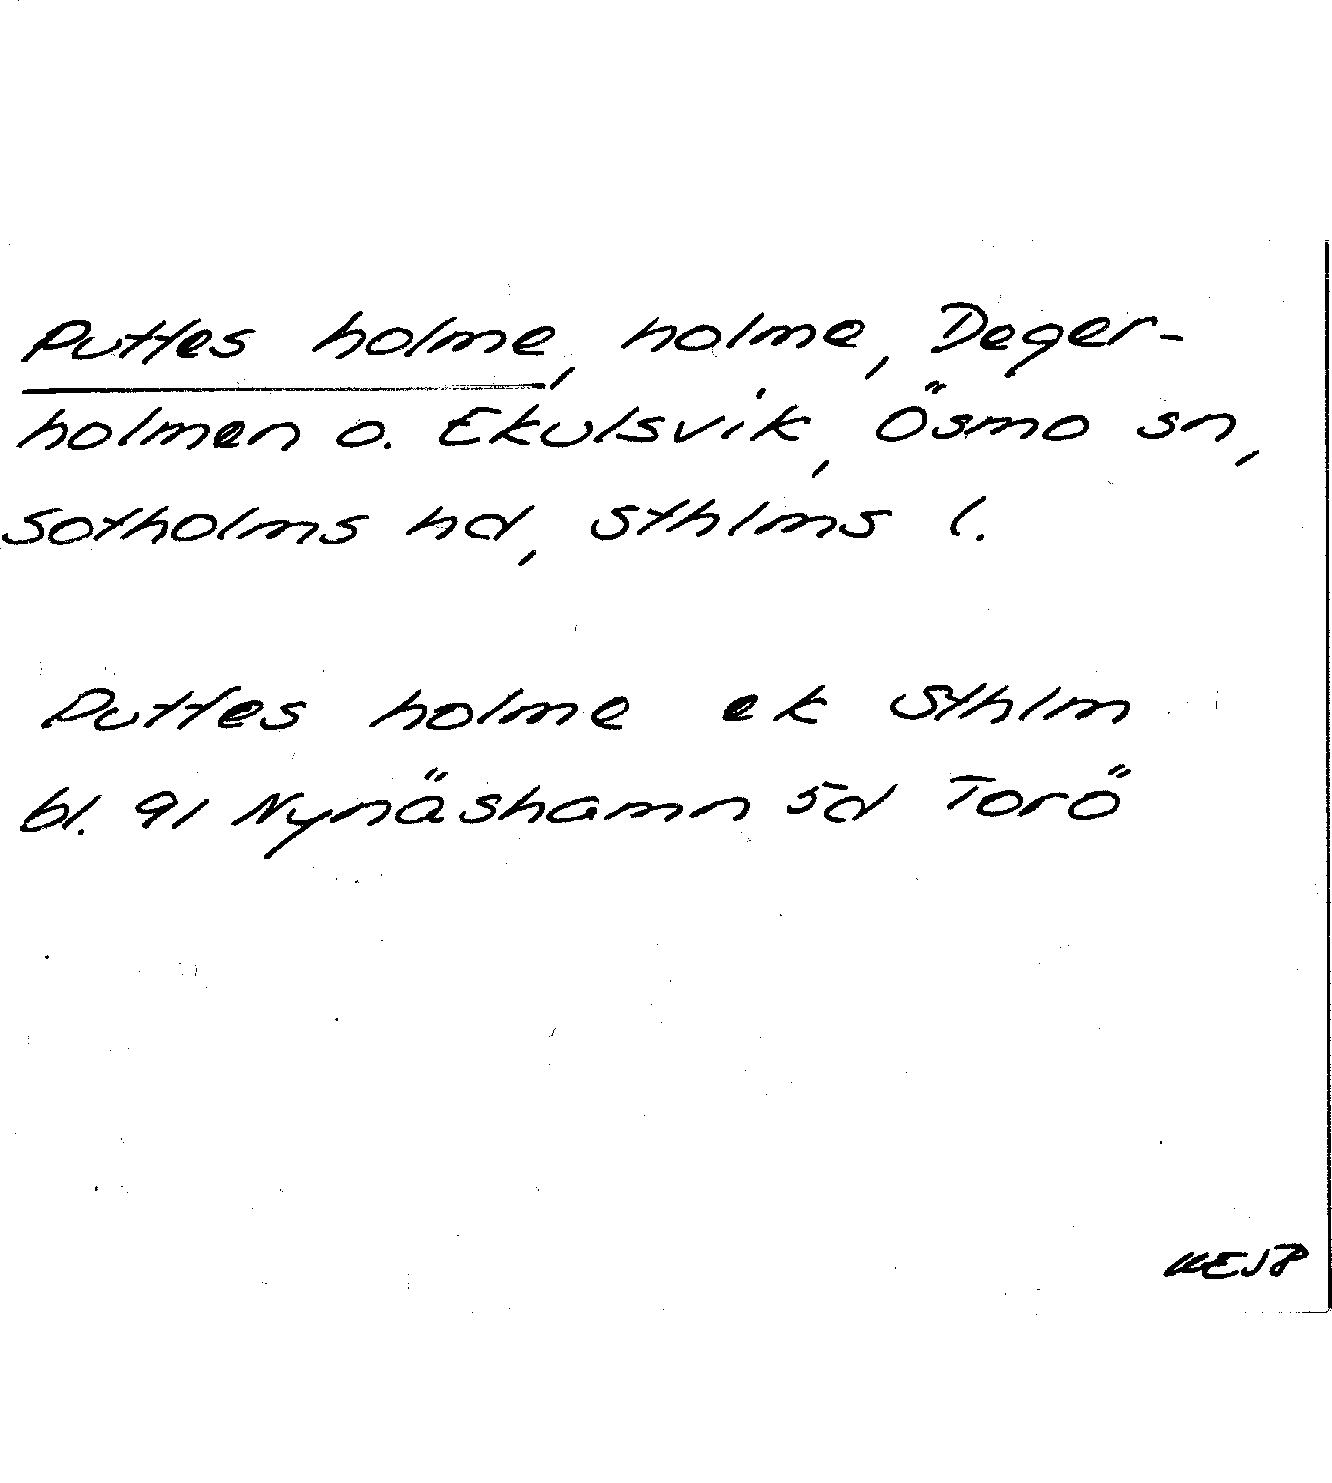 Puttes holme, holme, Deger-
holmen o. Ekulsvik, Ösmo sn,
Sotholms hd, Sthlms l.
Puttes holme ek Sthlm
bl. 91 Nynäshamn 5d Torö